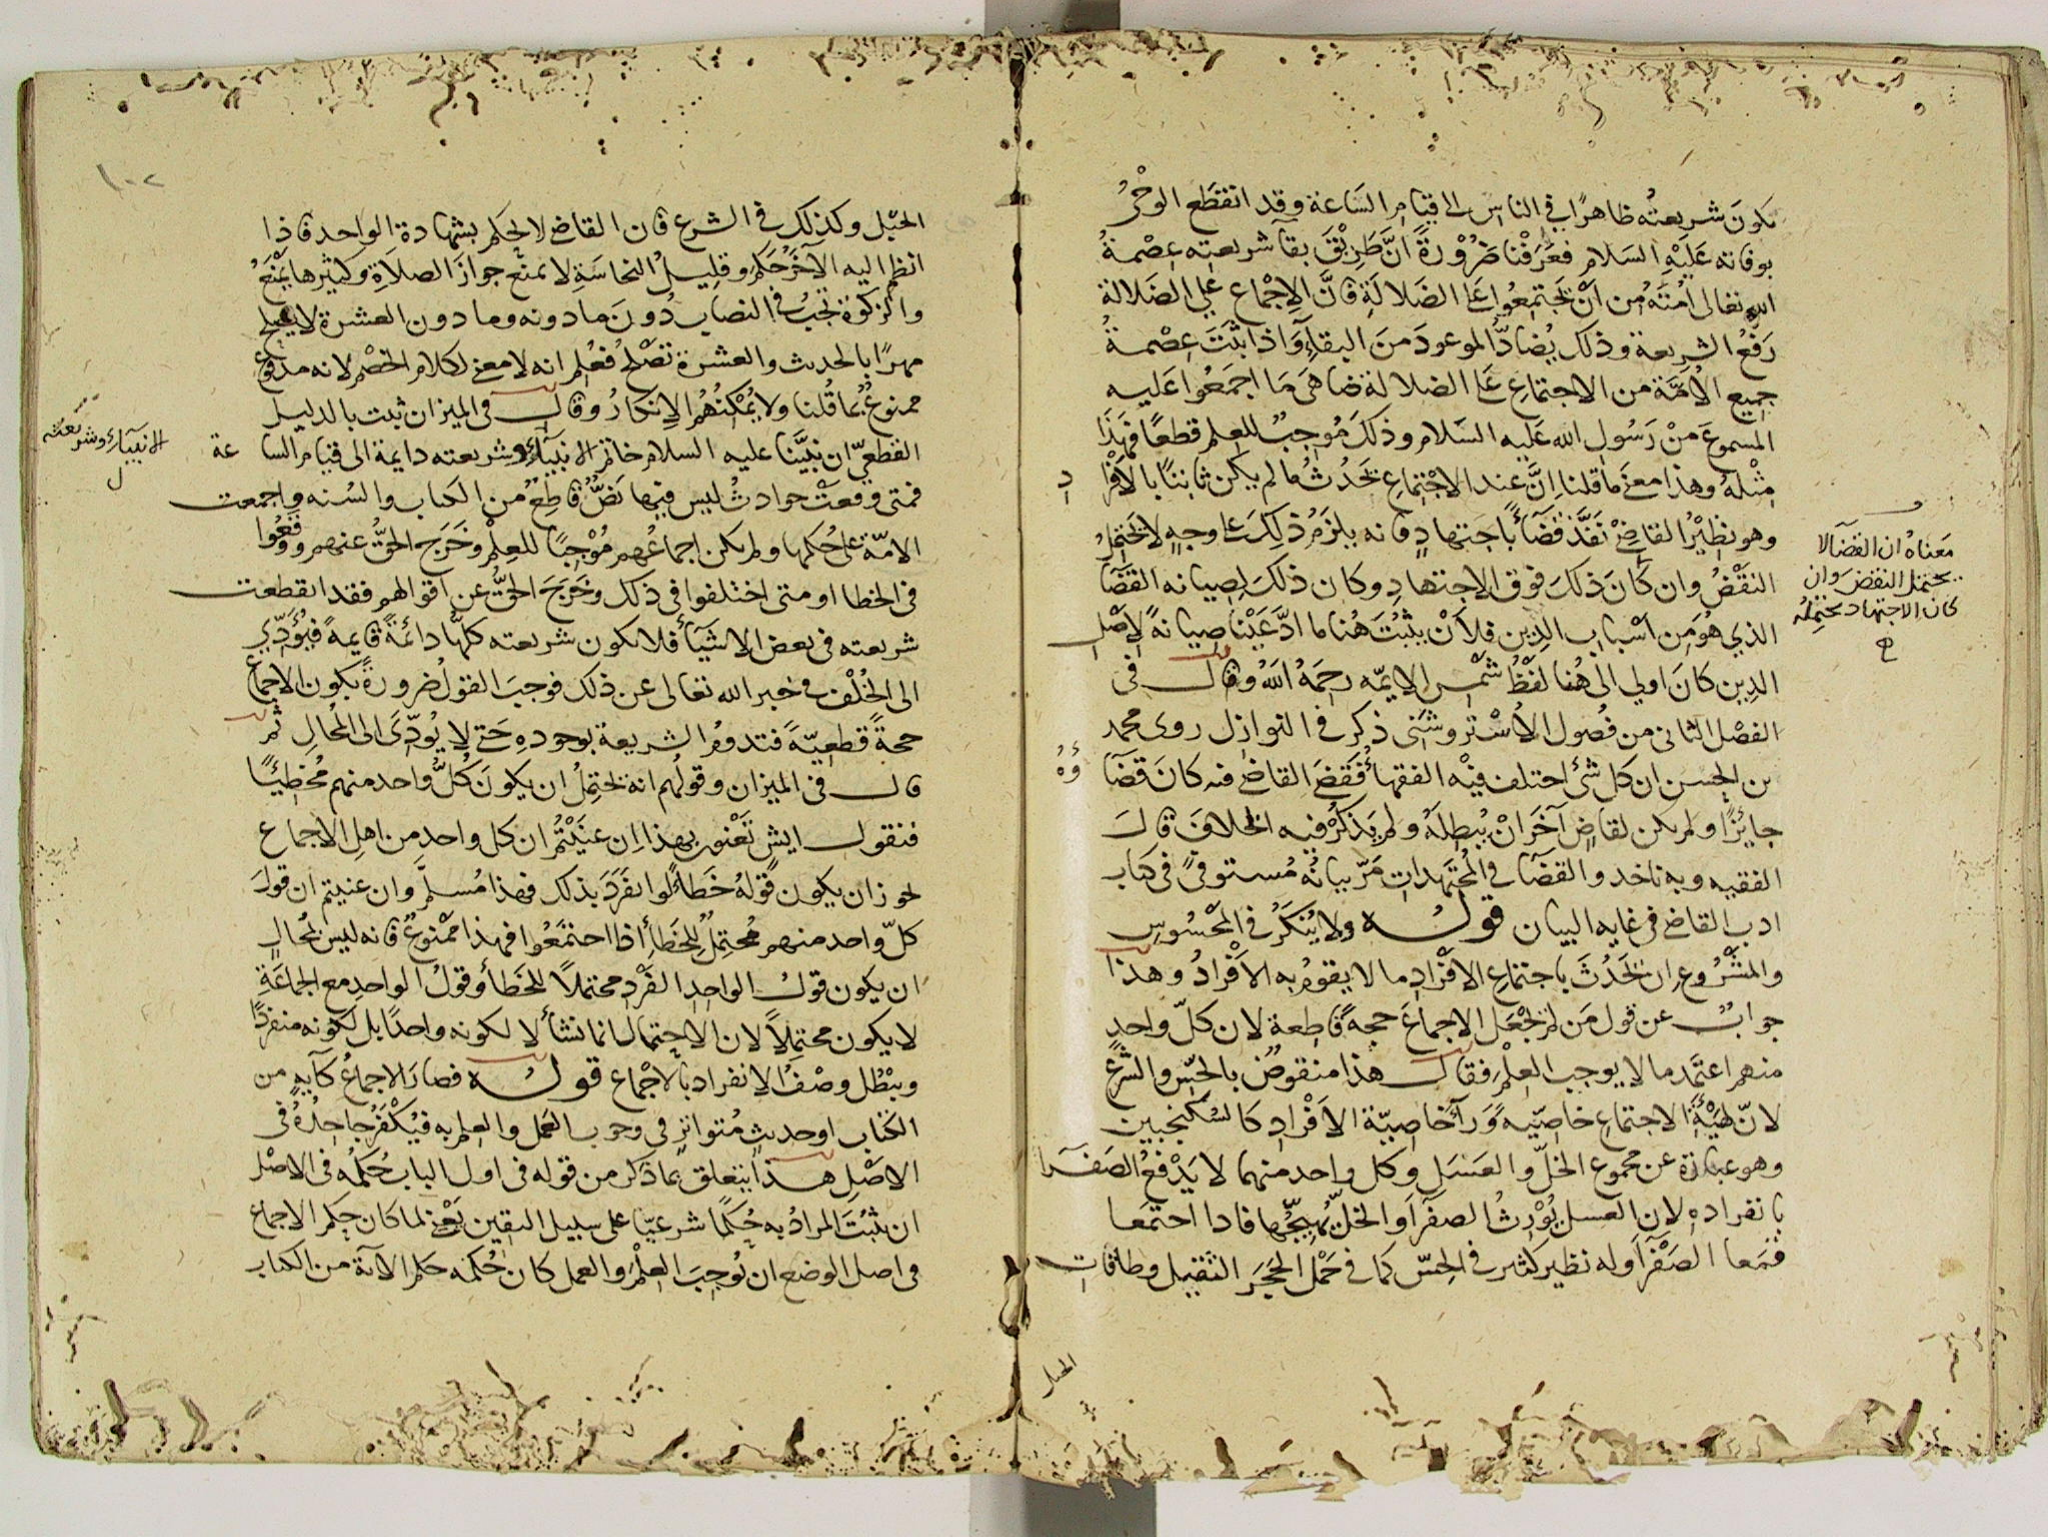 تكون شريعته ظاهرًا في الناس الى قيام الساعة وقد انقطع الوحْيُ
بوفاته عَلَيْهِ السَلام فعَرَفْنا ضَرُوْرةً انَّ طَرِيْقَ بقآ شريعته عِصْمةُ
الله تعالى اُمَّتَهُ من اَنْ يجتمِعُوا عَلَى الضَلالَةِ فانَّ الاِجْماع على الضَلالة
رَفْعُ الشريعة وذلك يُضادُّ الموعودَ مِنَ البقآءِ واذا ثبَتَ عِصْمةُ
جميع الاُمَّة من الاجتماع عَلَى الضلالة ضاهَى مَا اجمَعُوا عَليه
المسموعَ مِنْ رَسُولِ الله عَليه السَلام وذلكَ مُوجِبٌ للعِلم قطعًا فهذَا
مِثْلهُ وهذا معنَى ما قلنا اِنَّ عند الاجْتماعِ يَحْدُثُ ما لم يكن ثابتًا بالاَفْرَادِ
وهو نظِيْرُ القاضِيْ نَفَّذَ قضَآءً باجتهادٍ فانه يلزَمُ ذلِكَ على وجهٍ لا يَحتَمِلُ
النَقْضَ وان كَانَ ذلكَ فوق الاجتهادِ وكان ذلكَ لِصيانه القضَآ
الذي هُوَ مِن اسْبابِ الدِين فلاَنْ يثبُتَ هُنا ما ادَّعَيْنا صِيانةً لاِصْلِ
الدِين كانَ اولي الى هُنا لفْظُ شمْسِ الايمّه رحِمَهُ اللهُ وقال في
الفصْل الثاني من فُصُولِ الاُسْتروشَنى ذكر في النوازل روى محمد
بن الحسن ان كل شئ اختلف فيْه الفقهآءُ فقضَى القاضي فيه كانَ قضَآؤُهُ
جايزًا ولم يكن لقاضٍ آخَرَ انْ يُبطِلَهُ ولم يَذكُرْ فيه الخلافَ قالَ
الفقيه وبه ناخذ والقضَآ في المُجتَهدات مَرّ بيانُه مُستوفىً في كتاب
ادب القاضي في غايه البيان قولُه ولا يُنكَرُ في المحْسُوسِ
والمشْرُوعِ ان يَحْدُثَ باجتماعِ الاَفْرَادِ ما لا يقومُ به الاَفْرادُ وهذا
جوابٌ عن قول مَن لم يجْعَلِ الاجماعَ حجةً قاطِعة لان كلّ واحدٍ
منهم اعتَمد ما لا يوجب العِلْمَ فقال هذا منقوضٌ بالحِسِّ والشَرع
لانّ لهَيْئَةِ الاجتماعِ خاصِيّةً وَرآءَ خاصِيّة الاَفْرادِ كالسكنجبين
وهو عبارة عن مجموع الخلّ والعسَل وكل واحد منهما لا يَدْفعُ الصفرا
بانفراده لان العسل يُوْرِثُ الصفرآ والخلّ يُهَيِّجُها فاذا اجتمعا
قمعا الصَفْرآ وله نظير كثير في الحِسّ كما في حَمْل الحجَر الثقيل وطاقاتِ
معناهُ ان القضآ لا
يحتمل النقضَ وان
كان الاجتهاد يحتمِلُه
ح
الحبل
١٠٢
الحَبْل وكذلك في الشرع فان القاضي لا يحكم بشهادة الواحد فاذا
انظم اليه الآخَرُ حَكَم وقليلُ النجاسَةِ لا تمنَع جوازَ الصلاةِ وكثيرها يَمْنَعُ
والزكوة تجبُ في النصاب دُوْنَ ما دونه وما دون العشرة لا يصلح
مهرًا بالحديث والعشرة تصْلُحُ فعُلِم انه لا معنى لكلام الخَصْم لانه مدفوع
ممنوعٌ بما قُلنا ولا يُمْكنُهُم الاِنكارُ وقال في الميزان ثبت بالدليل
القطعيّ ان نبيَّنا عليه السلام خاتم الانبيآءِ وشريعته دايمة الى قيام الساعة
الانبيآءِ وشريعته
فمتى وقعتْ حوادثُ ليس فيها نَصٌّ قاطِعٌ من الكتاب والسُنه واجمعت
الامّة على حُكمها ولم يكن اجماعُهم مُوْجِبًا للعِلْم وخَرَج الحَقُّ عنهم ووقعُوا
في الخطا او متى اختلفوا في ذلك وخَرَجَ الحقُّ عن اقوالهم فقد انقطعت
شريعته في بعض الاشيَآءِ فلا يكون شريعته كلّها دائمةً قايمةً فيُؤَدّي
الى الخُلْف في خبر الله تعالى عن ذلك فوجبَ القولُ ضرورةً بكون الاجماع
حجةً قطعِيّةً فتدوم الشريعة بوجودهِ حَتى لا يُودِّيَ الى المُحالِ ثم
قال في الميزان وقولُهم انه يَحتمِلُ ان يكونَ كلُّ واحد منهم مُخطِئًا
فنقول ايش تَعْنون بهذا اِن عنَيْتُم ان كل واحد من اهلِ الاجماع
يجوز ان يكون قولهُ خَطأً لو انفرَدَ بذلك فهذا مُسلَّم وان عنيتم ان قولَ
كلّ واحد منهم مُحتمِلٌ للخطَأِ اذا اجتَمَعُوا فهذا ممْنوعٌ فانه ليس بمُحالٍ
ان يكون قولُ الواحدِ الفَرْدِ محتملاً للخَطأِ وقولُ الواحدِ مع الجماعَة
لا يكون محتمِلاً لان الاحتمال انما نشأ لا لكونه واحدًا بل لكونه منفردًا
ويبْطُل وصْفُ الاِنفراد بالاِجْماع قولُه فصارَ الاجماعُ كآيةٍ من
الكتاب او حديثٍ مُتواترٍ في وجوب العَمل والعلم به فيُكْفَرُ جاحِدُهُ في
الاصْلِ هذا يتعلق بما ذكر من قوله في اول الباب حُكمُه في الاصْل
ان يثبُتَ المرادُ به حُكمًا شرعيّا على سبيل اليقين يَعْني لما كان حكم الاجماع
في اصل الوضع ان يُوجِبَ العِلْمَ والعمل كان حُكمه حكم الآية من الكتاب